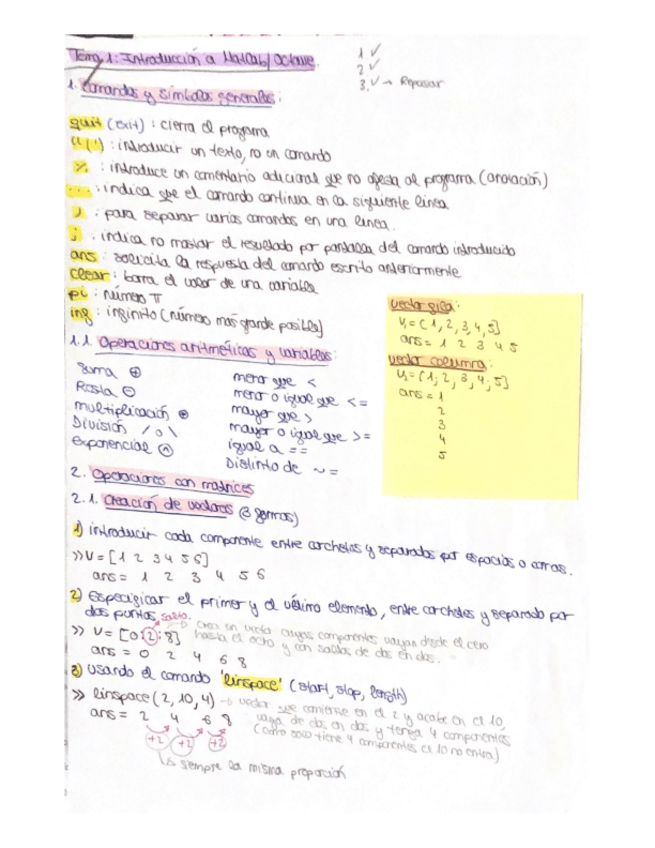 Tema 1: Introducción a Matlab/Octave.
1 ✓
2 ✓
3. ✓ → Repasar
1. Comandos y símbolos generales:
quit (exit): cierra el programa
" (') : introducir un texto, no un comando
% : introduce un comentario adicional que no afecta al programa (anotación)
... : indica que el comando continua en la siguiente línea
, : para separar varios comandos en una línea.
; : indica no mostrar el resultado por pantalla del comando introducido
ans : solicita la respuesta del comando escrito anteriormente
clear : borra el valor de una variable
pi : número π
inf : infinito (número más grande posible)
1.1. Operaciones aritméticas y variables:
Suma +
Resta -
multiplicación *
División / o \
exponencial ^
menor que <
menor o igual que <=
mayor que >
mayor o igual que >=
igual a ==
Distinto de ~=
vector fila:
V₁=[1, 2, 3, 4, 5]
ans = 1 2 3 4 5
vector columna:
V₂=[1; 2; 3; 4; 5]
ans = 1
2
3
4
5
2. Operaciones con matrices
2.1. Creación de vectores (3 formas)
1) introducir cada componente entre corchetes y separados por espacios o comas.
>> V = [1 2 3 4 5 6]
ans = 1 2 3 4 5 6
2) Especificar el primer y el último elemento, entre corchetes y separado por
dos puntos. salto.
>> V = [0:2:8] → Crea un vector cuyas componentes vayan desde el cero
hasta el ocho y con saltos de dos en dos.
ans = 0 2 4 6 8
3) Usando el comando 'linspace' (start, stop, length)
>> linspace(2, 10, 4) → vector que comience en el 2 y acabe en el 10,
vaya de dos en dos y tenga 4 componentes
(como solo tiene 4 componentes el 10 no entra)
ans = 2 4 6 8
+2 +2 +2
↳ siempre la misma proporción